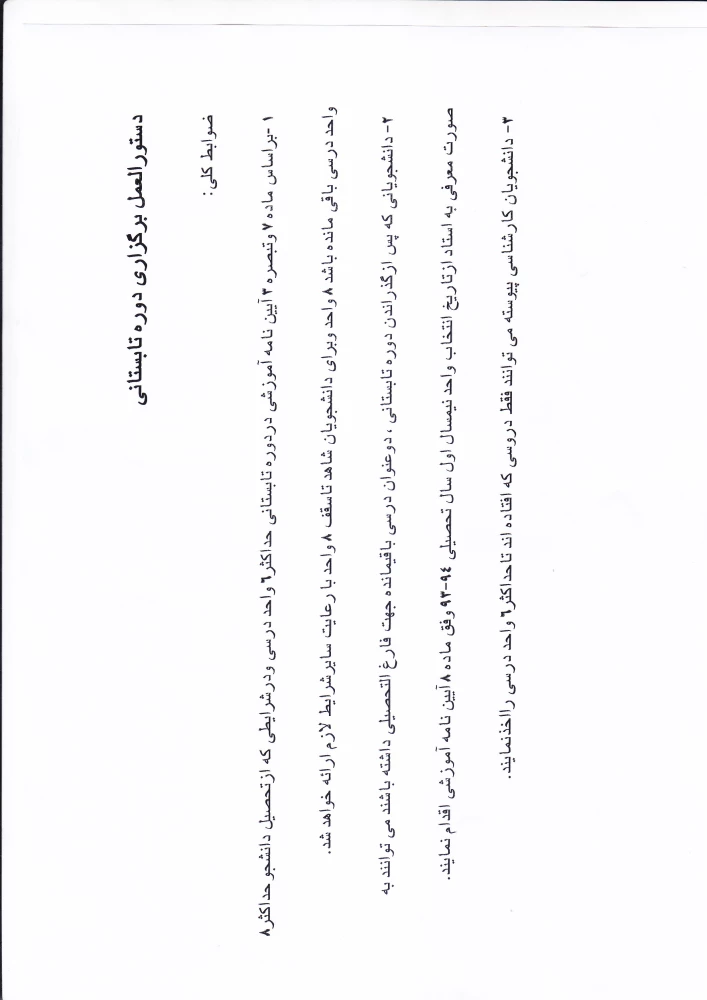 دستورالعمل برگزاری دوره تابستانی
ضوابط کلی :
۱ -براساس ماده ۷ وتبصره ۳ آیین نامه آموزشی دردوره تابستانی حداکثر۶ واحد درسی ودرشرایطی که ازتحصیل دانشجو حداکثر۸
واحد درسی باقی مانده باشد ۸ واحد وبرای دانشجویان شاهد تاسقف ۸ واحد با رعایت سایرشرایط لازم ارائه خواهد شد.
۲- دانشجویانی که پس ازگذراندن دوره تابستانی ، دوعنوان درسی باقیمانده جهت فارغ التحصیلی داشته باشند می توانند به
صورت معرفی به استاد ازتاریخ انتخاب واحد نیمسال اول سال تحصیلی ۹۴-۹۳ وفق ماده ۸ آیین نامه آموزشی اقدام نمایند.
۳- دانشجویان کارشناسی پیوسته می توانند فقط دروسی که افتاده اند تاحداکثر۶ واحد درسی رااخذنمایند.